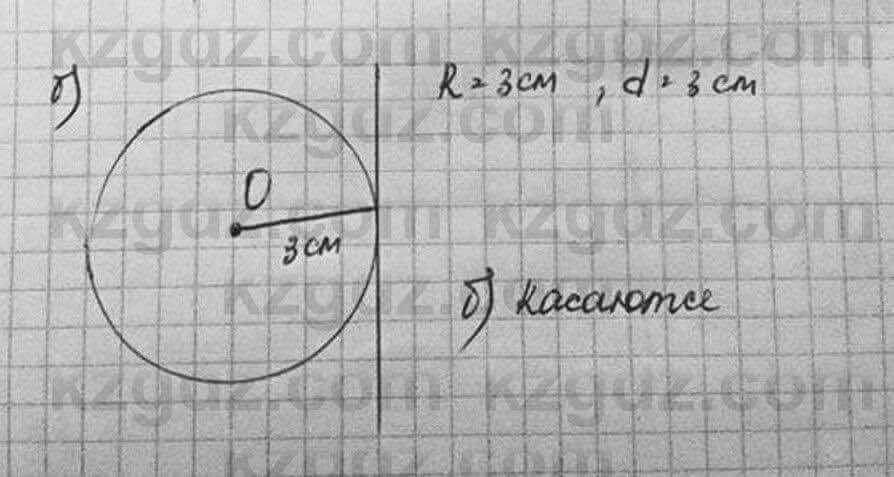 kzgdz.com kzgdz.com
б)
R = 3 см , d = 3 см
kzgdz.com
O
kzgdz.com kzgdz.com
3 см
kzgdz.com
б) касаются
kzgdz.com kzgdz.com
kzgdz.com